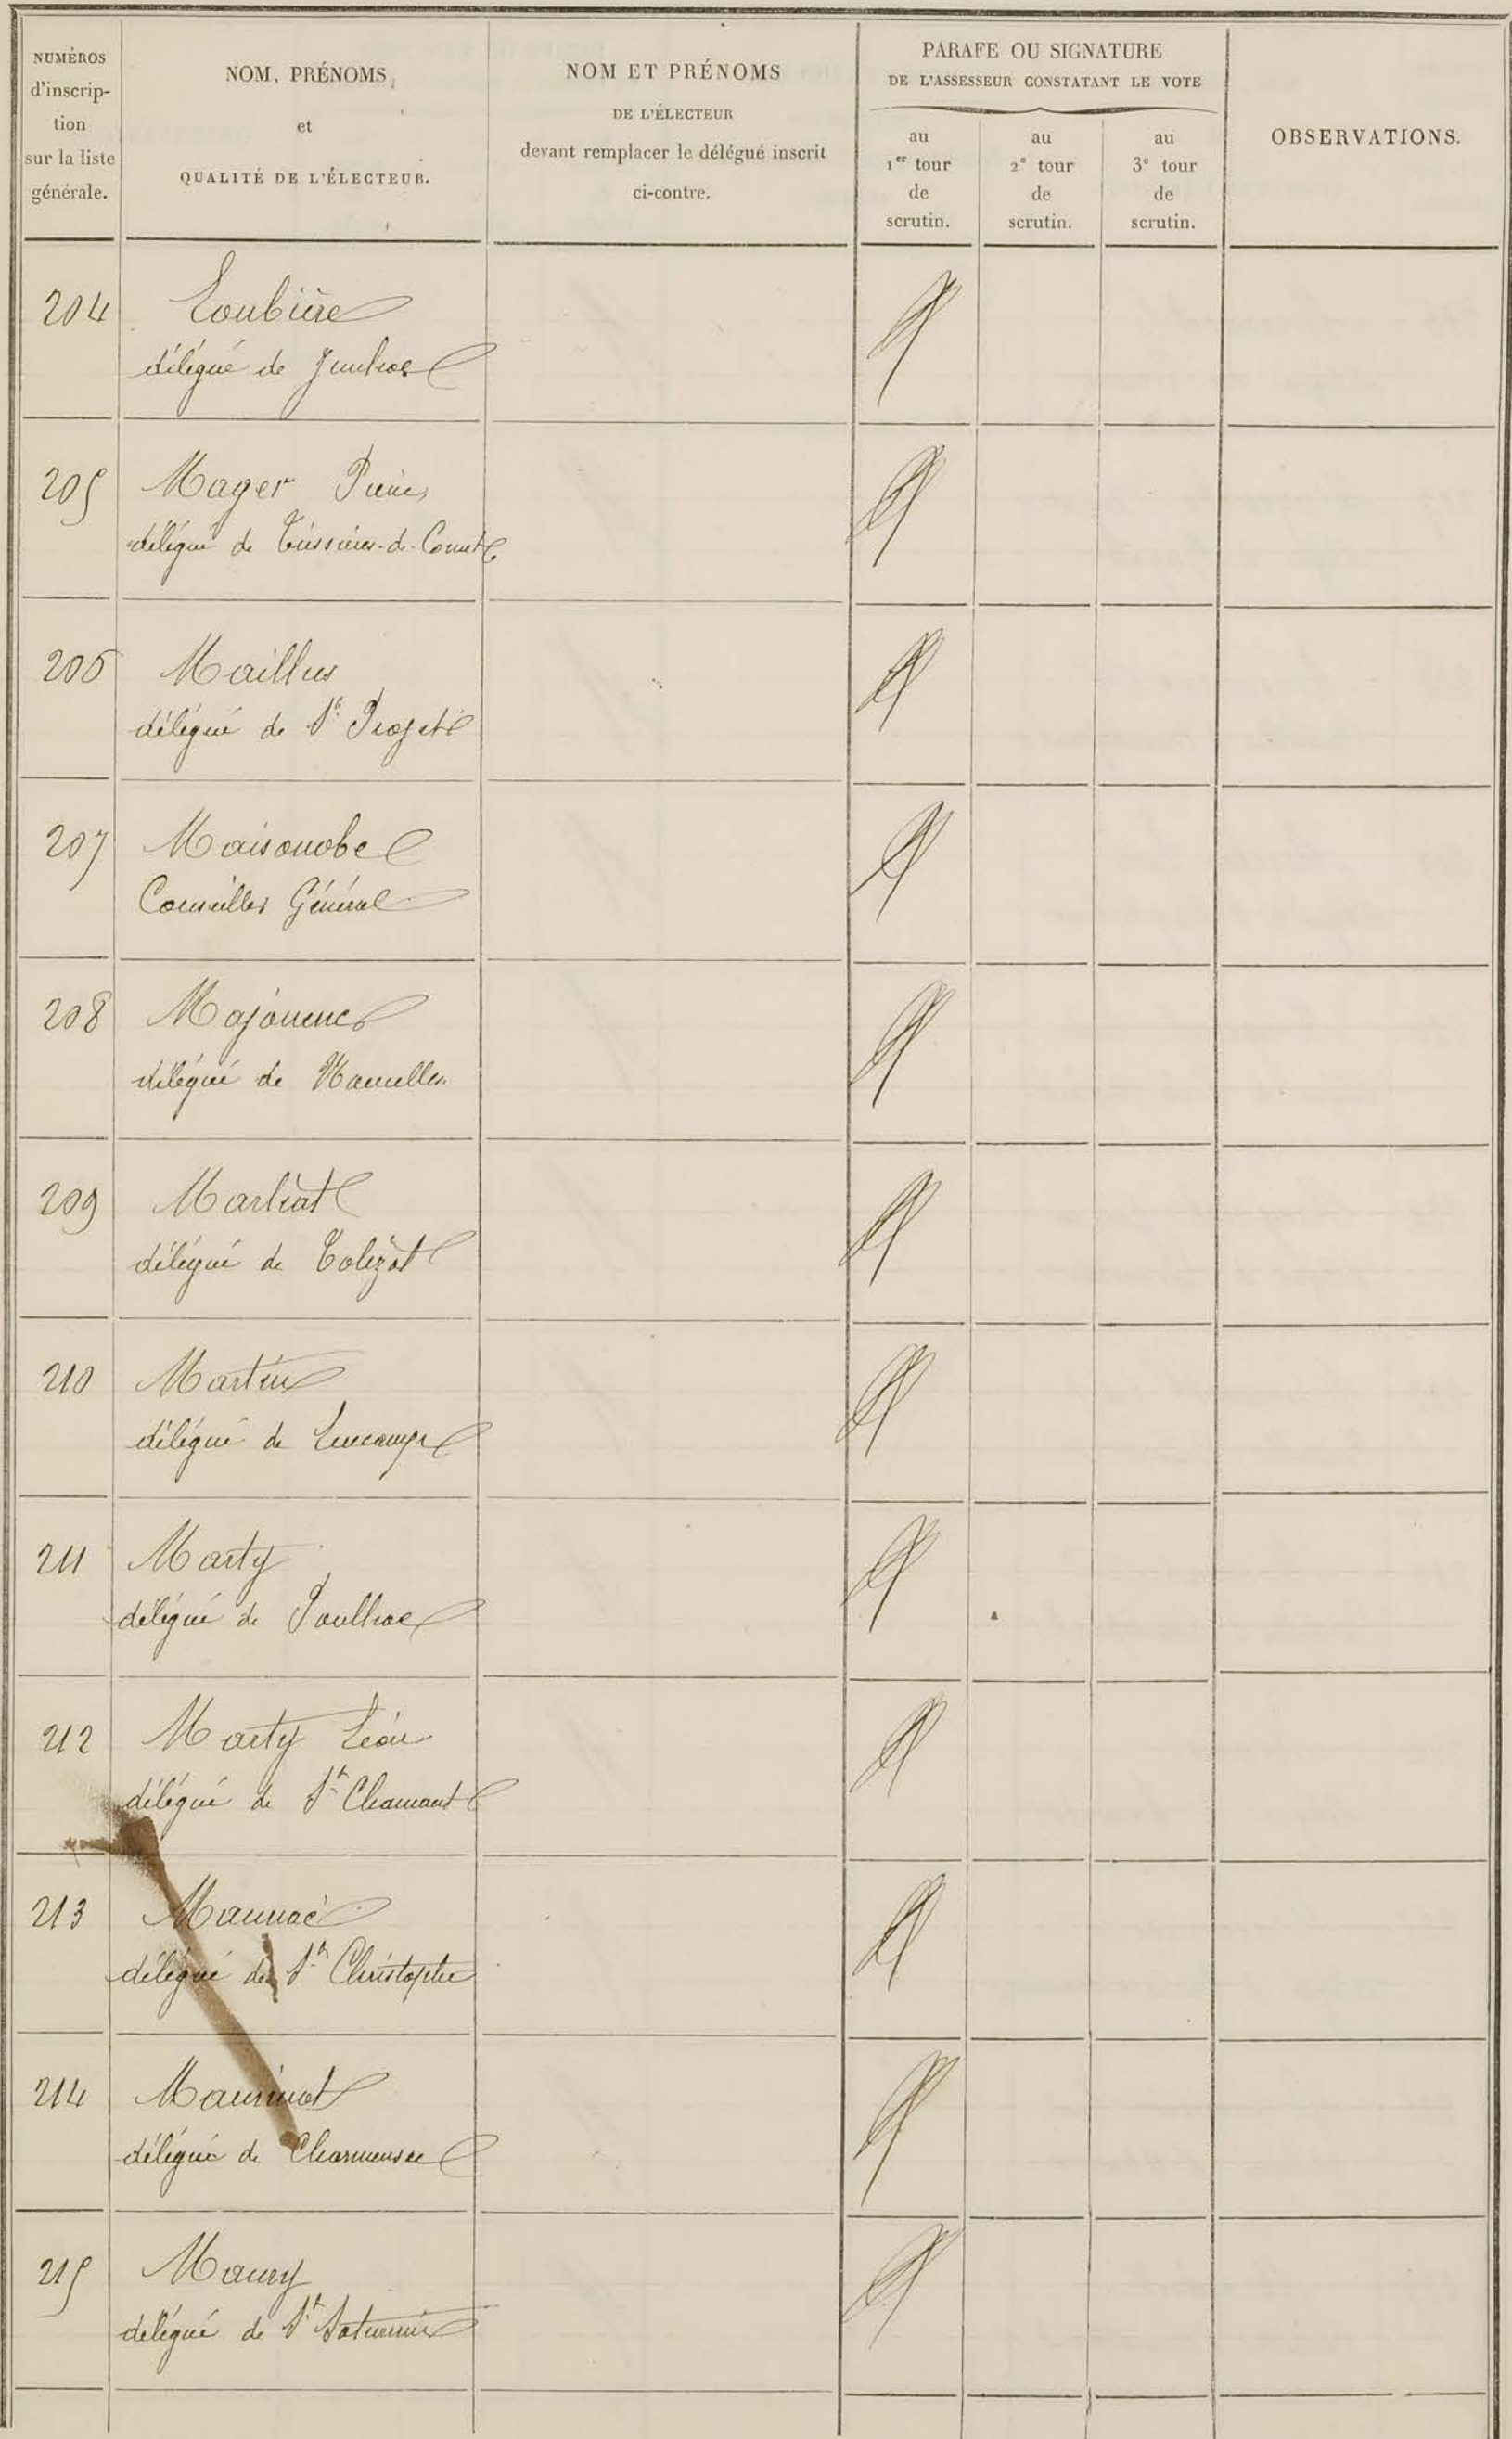 NUMÉROS
d'inscrip-
tion
sur la liste
générale.
NOM, PRÉNOMS,
et
QUALITÉ DE L'ÉLECTEUR.
NOM ET PRÉNOMS
DE L'ÉLECTEUR
devant remplacer le délégué inscrit
ci-contre.
PARAFE OU SIGNATURE
DE L'ASSESSEUR CONSTATANT LE VOTE
au
1er tour
de
scrutin.
au
2e tour
de
scrutin.
au
3e tour
de
scrutin.
OBSERVATIONS.
204 Loubière
délégué de Junhac
205 Mager
délégué de Teissières-de-Cornet
206
délégué de St Projet
207 Maisonobe
Conseiller Général
208 Majonenc
délégué de
209 Marliat
délégué de Talizat
210 Martin
délégué de Leucamp
211 Marty
délégué de Paulhac
212 Marty Léon
délégué de St Chamant
213
délégué de St Christophe
214
délégué de Charmensac
215 Maury
délégué de St Saturnin